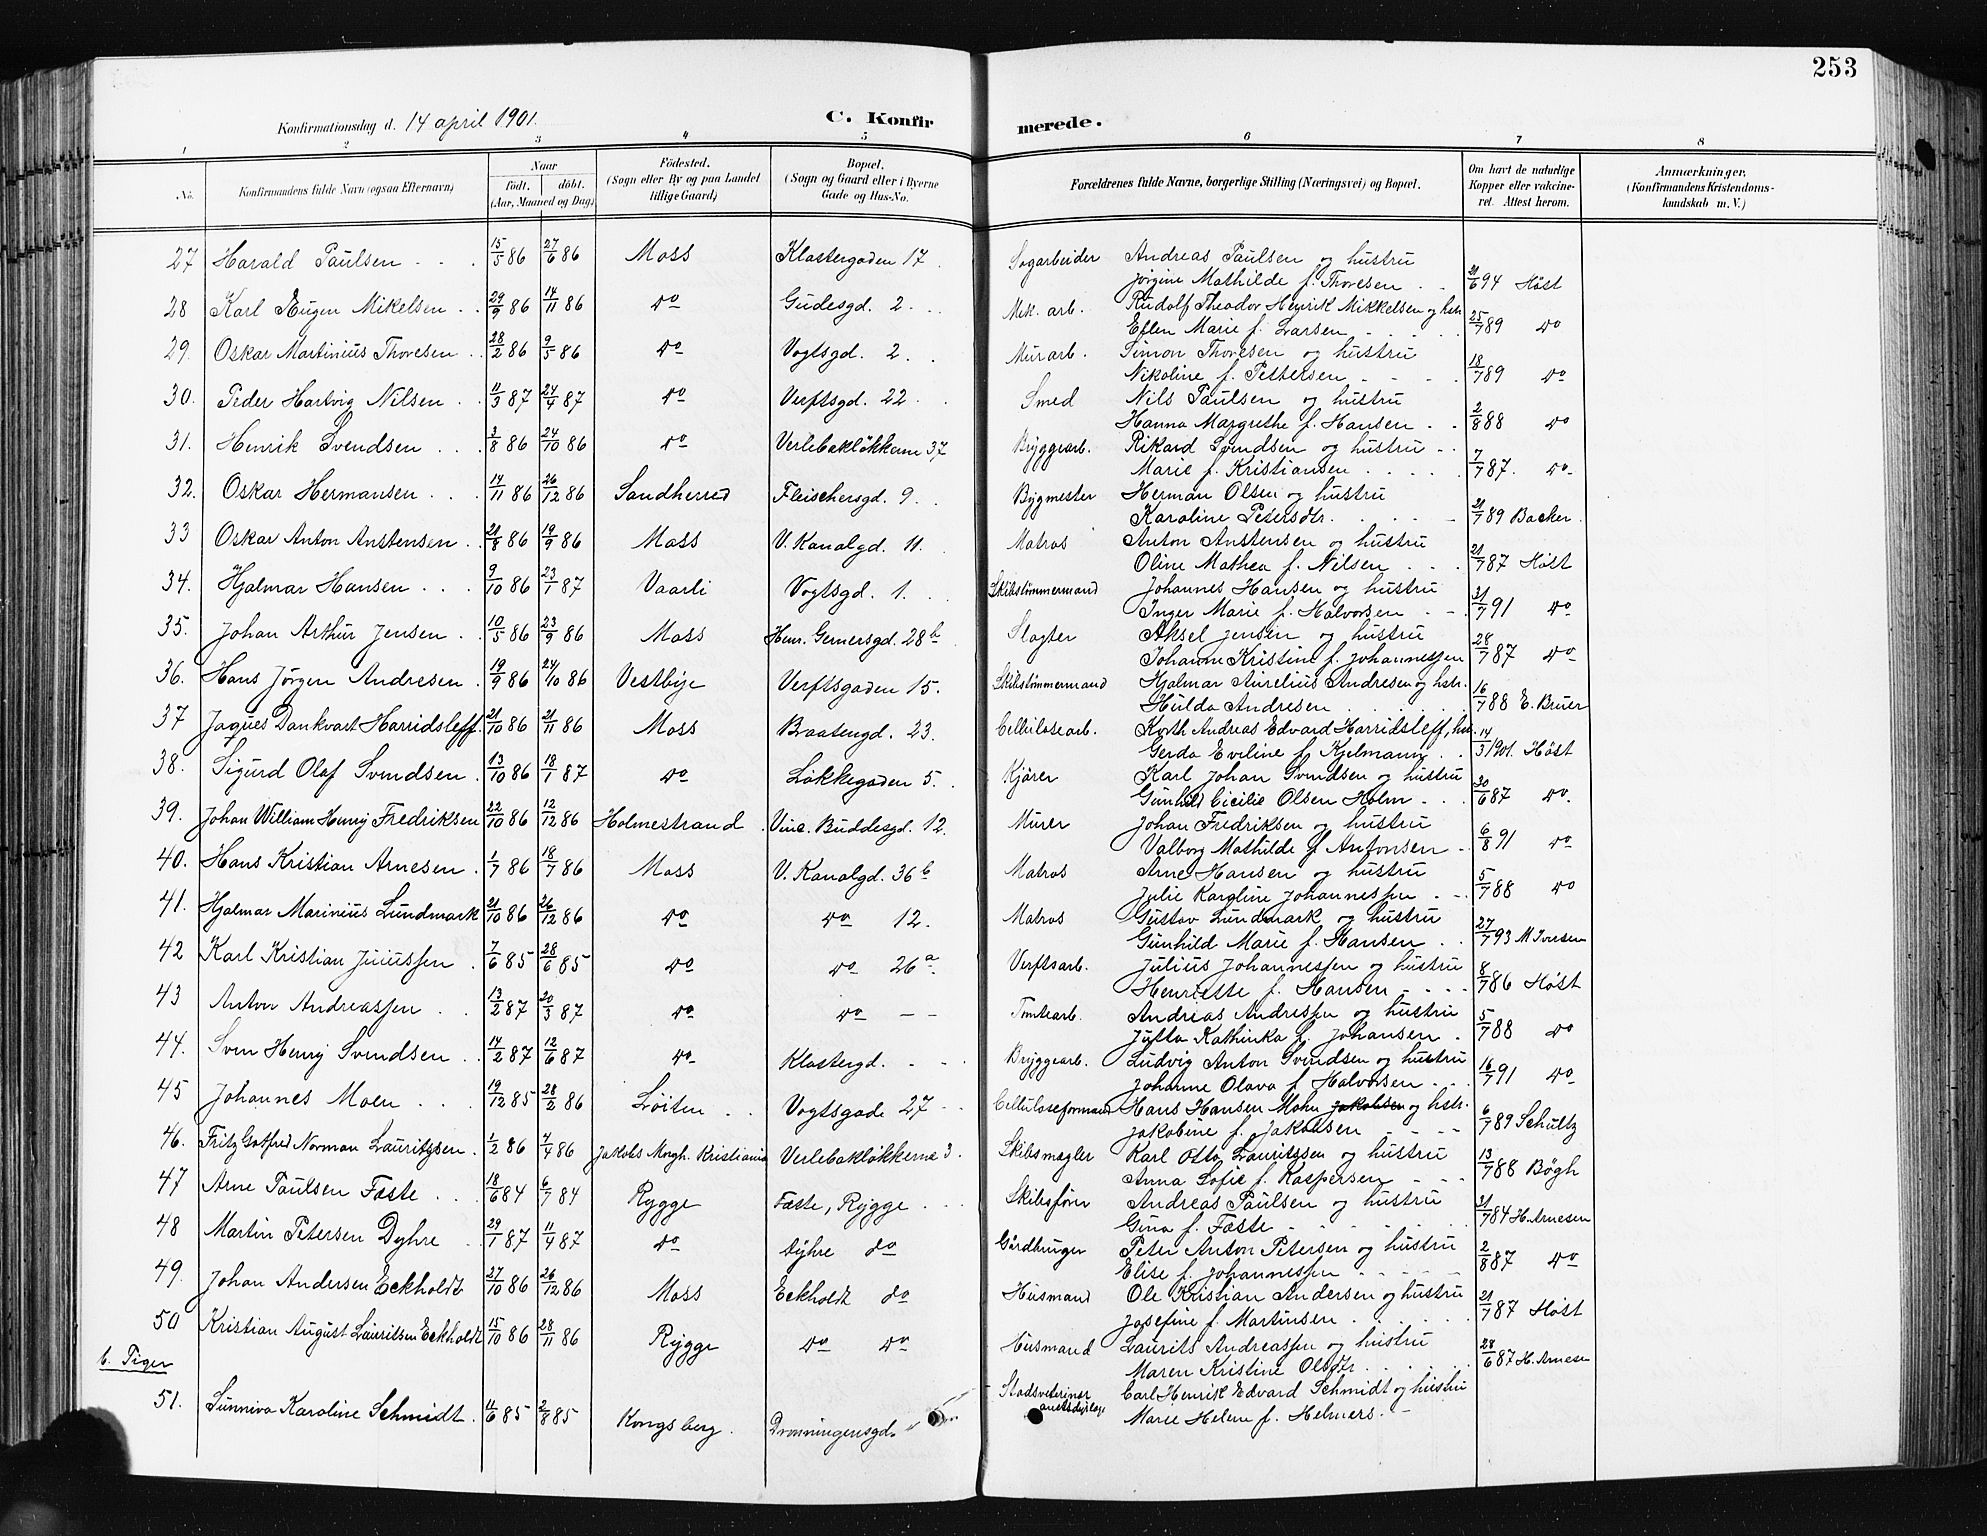 253
Konfirmationsdag d. 14 april 1901.
C. Konfirmerede.
1 2 3 4 5 6 7 8
No. Konfirmandens fulde Navn (ogsaa Efternavn) Naar født. døbt. (Aar, Maaned og Dag) Fødested. (Sogn eller By og paa Landet tillige Gaard) Bopæl. (Sogn og Gaard eller i Byerne Gade og Hus-No. Forældrenes fulde Navne, borgerlige Stilling (Næringsvei) og Bopæl. Om havt de naturlige Kopper eller vakcineret. Attest herom. Anmærkninger. (Konfirmandens Kristendomskundskab m. V.)
27 Harald Paulsen 15/5 86 27/6 86 Moss Klostergaden 17 Sagarbeider Andreas Paulsen og hustru
Jørgine Mathilde f. Thoresen 21/6 94 Høst
28 Karl Eugen Mikelsen 29/9 86 14/11 86 do Gudesgd. 2 Mek. arb. Rudolf Theodor Henrik Mikkelsen og hstr
Ellen Marie f. Larsen 25/7 89 do
29. Oskar Martinius Thoresen 28/2 86 9/5 86 do Vogtsgd. 2 Murarb. Simon Thoresen og hustru
Nikoline f. Pettersen 18/7 89 do
30. Peder Hartvig Nilsen 11/3 87 24/4 87 do Verftsgd. 22 Smed Nils Paulsen og hustru
Hanna Margrethe f. Hansen 2/8 88 do
31. Henrik Svendsen 3/8 86 24/10 86 do Verlebakløkkerne 37 Bryggearb. Rikard Svendsen og hustru
Marie f. Kristiansen 7/7 87. do
32. Oskar Hermansen 14/11 86 26/12 86 Sandherred Fleischersgd. 9 Bygmester Herman Olsen og hustru
Karoline Petersdtr. 21/7 89 Backer.
33 Oskar Anton Anstensen 21/8 86 19/9 86 Moss V. Kanalgd. 11. Matros Anton Anstensen og hustru
Oline Mathea f. Nilsen 21/7 87 Høst
34. Hjalmar Hansen 9/10 86 23/1 87 Vaarli Vogtsgd. 1. Skibstømmermand Johannes Hansen og hustru
Inger Marie f. Halvorsen 31/7 91 do
35. Johan Arthur Jensen 10/5 86 23/9 86 Moss Henr. Gernersgd. 28b Slagter Aksel Jensen og hustru
Johanne Kristine f. Johannessen 28/7 87 do
36. Hans Jørgen Andresen 19/9 86 24/10 86 Vestbye Verftsgaden 15. Skibstømmermand Hjalmar Aurelius Andresen og hstr.
Hulda Andresen 16/7 88 E. Bruer
37 Jaques Dankvart Harridsleff 21/10 86 21/11 86 Moss Braatengd. 23. Cellulosearb. Korth Andreas Edvard Harridsleff, hu.
Gerda Eveline f. Kjelmann 14/3 1901. Høst
38. Sigurd Olaf Svendsen 13/10 86 18/1 87 do Løkkegaden 5. Kjører Karl Johan Svendsen og hustru
Gunhild Cicilie Olsen Holm 30/6 87 do.
39. Johan William Henry Fredriksen 22/10 86 12/12 86 Holmestrand Vinc. Buddesgd. 12. Murer Johan Fredriksen og hustru
Valborg Mathilde f. Antonsen 6/8 91 do
40. Hans Kristian Arnesen 1/7 86 18/7 86 Moss V. Kanalgd. 36b Matros Arne Hansen og hustru
Julie Karoline Johannessen 5/7 88 do
41. Hjalmar Marinius Lundmark 21/10 86 26/12 86 do do 12. Matros Gustav Lundmark og hustru
Gunhild Marie f. Hansen 27/7 93 M Iversen
42 Karl Kristian Juiussen 7/6 85 28/6 85 do do 26a. Verftsarb. Julius Johannessen og hustru
Henriette f. Hansen 8/7 86 Høst
43 Anton Andreassen 13/2 87 20/3 87 do do Tomtearb. Andreas Andressen og hustru
Jutta Kathinka f. Johansen 5/7 88 do
44. Sven Henry Svendsen 14/2 87 12/6 87 do Klostergd. Bryggearb. Ludvig Anton Svendsen og hustru
Johanne Olava f. Halvorsen 16/7 91 do
45 Johannes Moen 19/12 85 28/2 86 Løiten Vogtsgade 27 Celluloseformand Hans Hansen Mohn Jakobsen og hstr.
Jakobine f. Jakobsen 6/7 89 Schultz
46. Fritz Gotfred Norman Lauritzsen 1/2 86 4/4 86 Jakobs Mngh. Kristiania Verlebakløkkerne 3. Skibsmægler Karl Otto Lauritssen og hustru
Anna Sofie f. Kaspersen 13/7 88 Bøgh
47 Arne Paulsen Faste 18/6 84 6/7 84 Rygge Faste, Rygge Skibsfører Andreas Paulsen og hustru
Gina f. Faste 31/7 84 H. Arnesen
48 Martin Petersen Dyhre 29/1 87 11/4 87 do Dyhre do Gårdbruger Peter Anton Petersen og hustru
Elise f. Johannessen 2/8 87 do
49. Johan Andersen Eckholdt 27/10 86 26/12 86 Moss Eckholdt do Husmand Ole Kristian Andersen og hustru
Josefine f. Martinsen 21/7 87 Høst
50 Kristian August Lauritsen Eckholdt 15/10 86 28/11 86 Rygge do do Husmand Laurits Andreassen og hustru
Maren Kristine Olsdtr. 28/6 87 H. Arnesen
b. Piger
51. Sunniva Karoline Schmidt 11/6 85 2/8 85 Kongsberg. Dronningensgd. Stadsveterinær Carl Henrik Edvard Schmidt og hustru
Marie Helene f. Helmers.